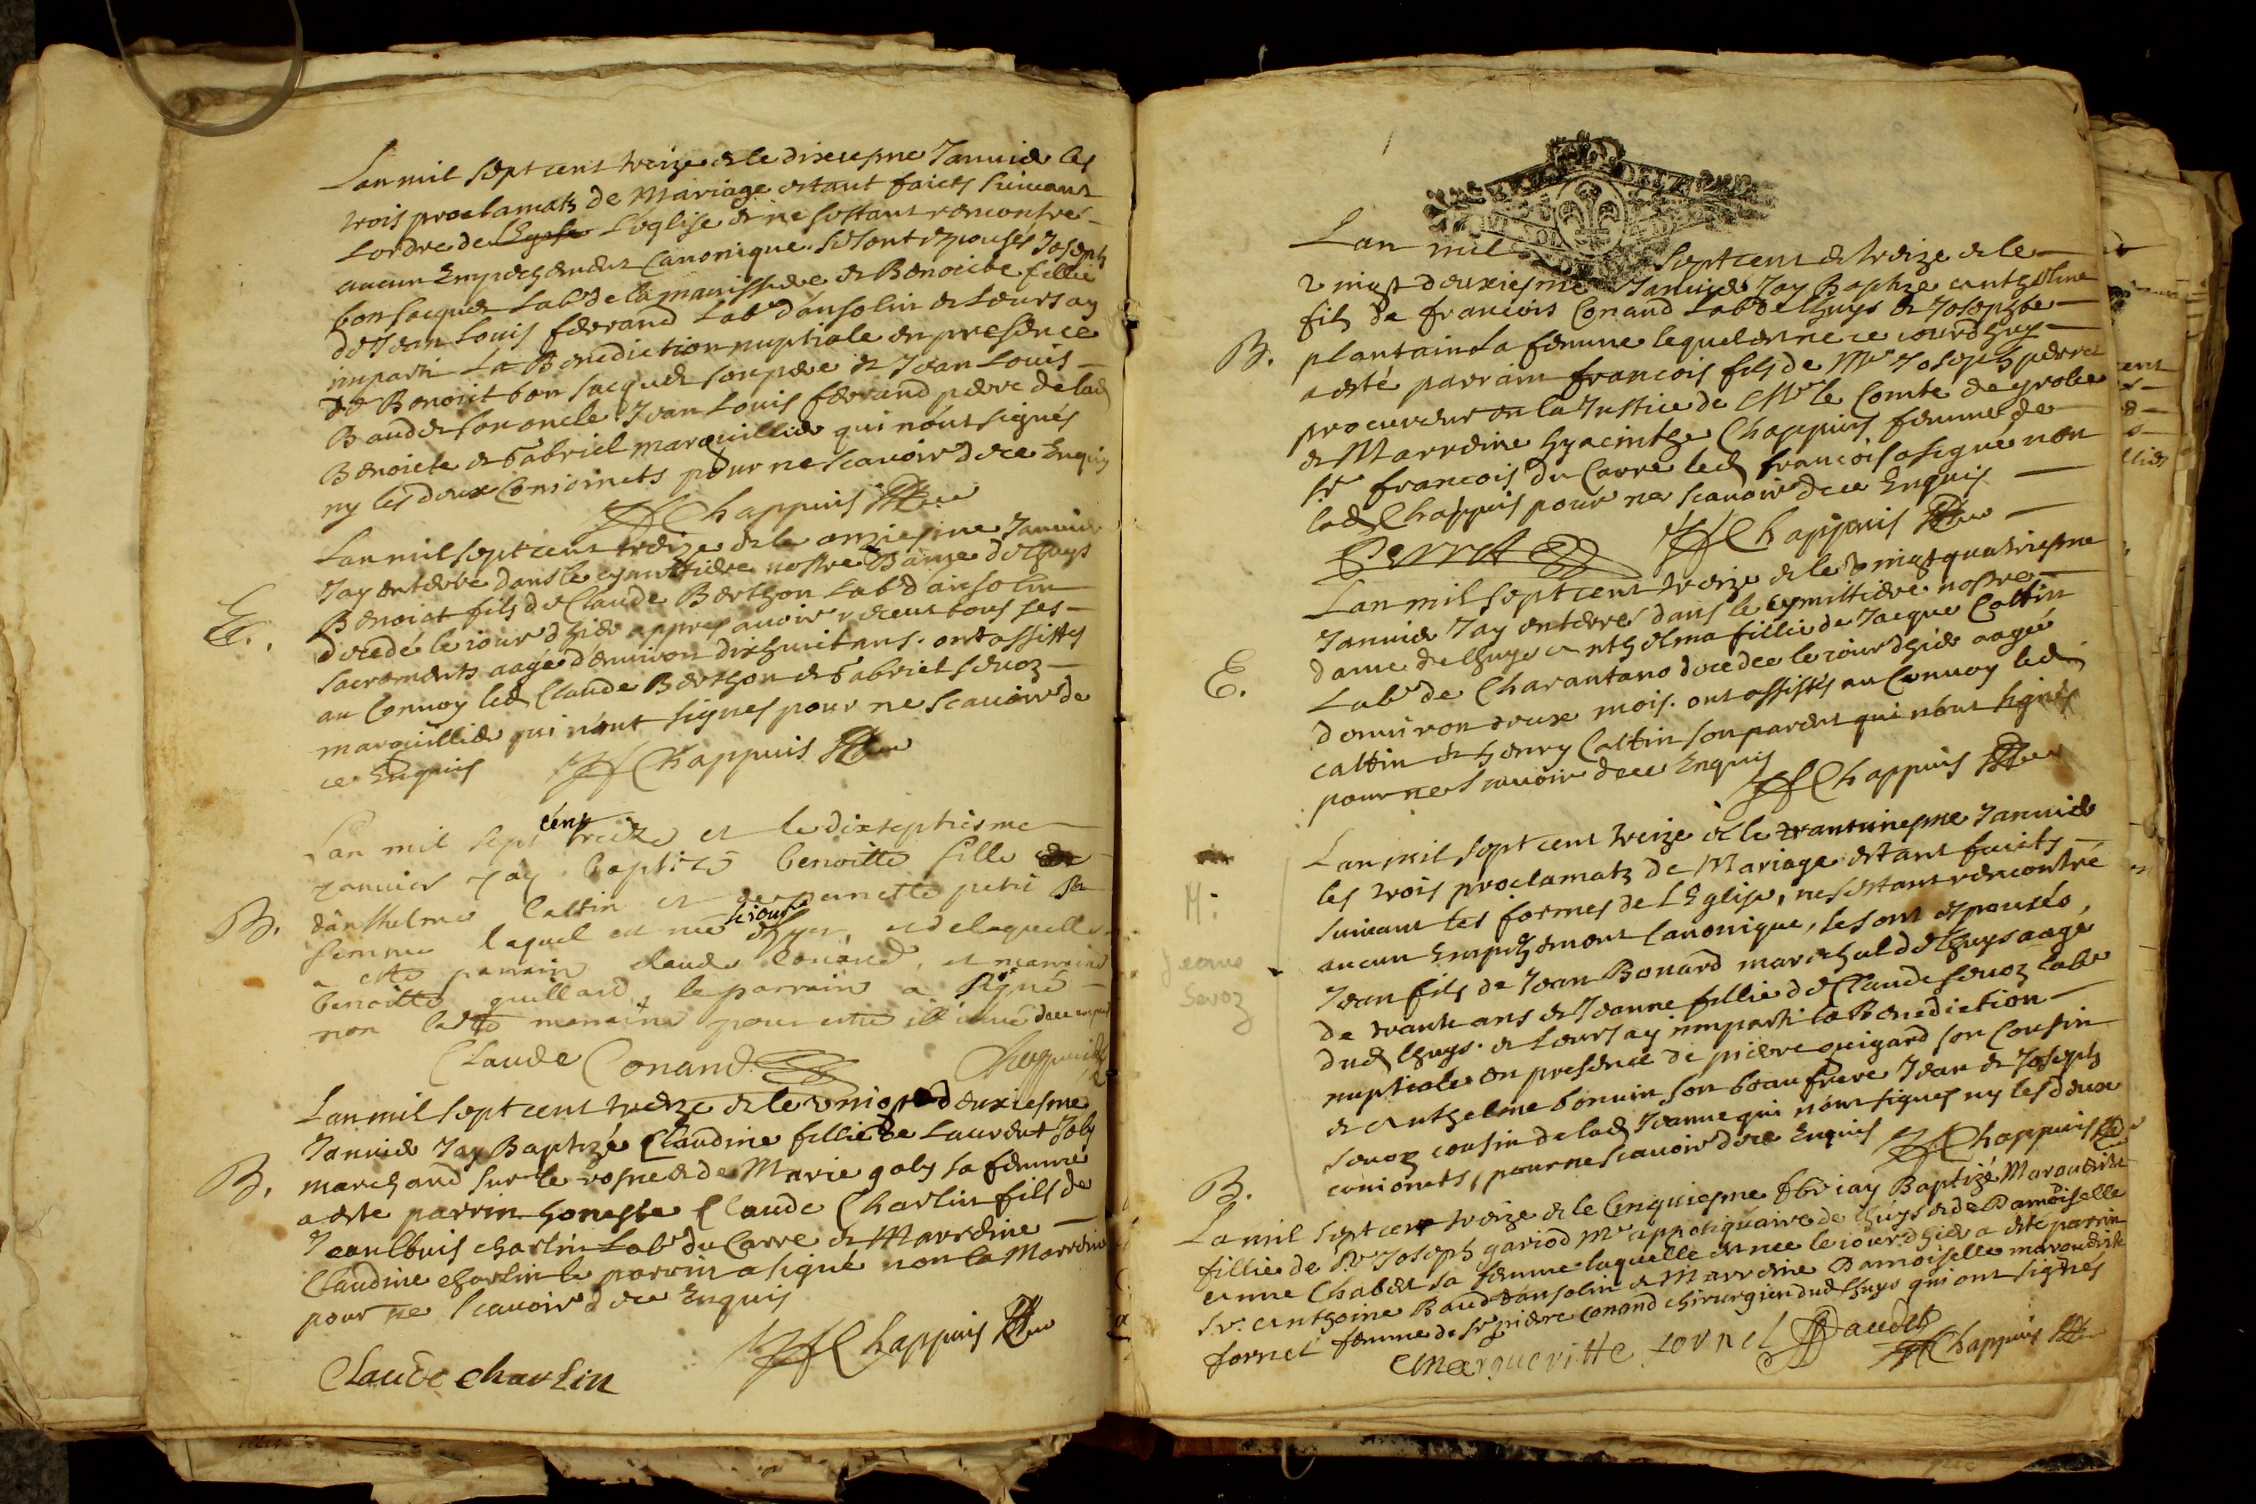 Lan mil sept cent treize & le dixiesme Januier les
trois proclamats de Mariage estant faicts suiuant
Lordre de LEglise L'eglise & ne sestant rencontré
aucun Empeschement Canonique. se sont espousés Joseph
bonsacquet Labr de la & Benoiche fillie
de Jean Louis ferrand Labr dansolin & Leurs ay
imparti La Benediction nuptiale en presence
de Benoict bonsacquet son pere & Jean Louis
Baudet son oncle. Jean Louis ferrand pere de lad
Benoicte & Gabriel marquillier qui n'ont signés
ny les deux Conioincts pour ne scauoir de ce Enquis
Chappuis
Lan mil sept cent treize & le onziesme Januier
E. Jay enterré dans le cymittiere nostre Dame de lhuys
Benoict fils de Claude Berthon Labr d'ansolin
decedé le iour dhier appres auoir receut tous ses
sacrements aagé d'enuiron dixhuit ans. ont assistés
au Conuoy led Claude Berthon & Gabriel seuoz
marquillier qui n'ont signes pour ne scauoir de
ce Enquis Chappuis
Lan mil sept cent treize et le dixseptiesme
B. januier jay baptizé benoitte fille
danthelme Cattin et de petri sa
femme laquel est née le jour et de laquelle
a esté parrain claude Conand, et marraine
benoitte quillard, le parrain a signé
non ladtte marraine pour estre illiteré de ce enquis
Claude Conand
Lan mil sept cent treize & le vingt deuxiesme
B. Januier Jay Baptizé Claudine fillie de Laurent Joly
marchand sur le rosne & de Marie goby sa femme
a esté parrin honeste Claude Charlin fils de
Jean Louis charlin Labr du Carre & Marreine
Claudine charlin le parrin a signé non la Marreine
pour ne scauoir de ce Enquis
Chappuis
Claude charlin
Lan mil sept cent & treize & le
vingt deuxiesme Januier Jay Baptize anthelme
fils de francois Conand Labr de lhuys & Josephte
B. plantain sa femme lequel est ne ce iourdhuy
a esté parrain francois fils de Mr Joseph perret
procureur en la Justice de Mr le Comte de groslee
& Marreine hyacinthe Chappuis femme de
sr francois du Carre led francois a signé non
lad Chappuis pour ne scauoir de ce Enquis
Perret Chappuis
Lan mil sept cent treize & le vingt quatriesme
Januier Jay enterré dans le cymittiere nostre
dame de lhuys anthelma fillie de Jacque Cattin
E. Labr de Charantano decedee le iour dhier aagé
denuiron deux mois. ont assistés au Conuoy led
cattin & henry Cattin son parent qui n'ont signés
pour ne scauoir de ce Enquis
Chappuis
Lan mil sept cent treize & le trantuniesme Januier
M. les trois proclamats de Mariage estant faicts
suiuant les formes de L'Eglise, ne sestant rencontré
aucun Empechement Canonique, se sont espousés,
Jeane Jean fils de Jean Bonard mareschal de lhuys aagé
Sevoz de trante ans & Jeanne fillie de Claude seuoz labr
dud lhuys. & Leurs ay imparti la Benediction
nuptiale en presence de pierre guigard son Cousin
& anthelme bonuin son beau frere Jean & Joseph
seuoz cousin de lad Jeanne qui n'ont signes ny les deux
conioincts, pour ne scauoir de ce Enquis Chappuis
B. La mil sept cent treize & le Cinquiesme fbr iay Baptizé Marguerite
fillie de Sr Joseph gariod Mre appotiquaire de lhuys & de Damoiselle
anne Chabert sa femme laquelle est nee le iour dhier a esté parrin
Sr. anthoine Baud dansolin & Marreine Damoiselle marguerite
fornet femme de sr pierre Conand chirurgien dud lhuys qui ont signés
Marguerite fornet Baudet Chappuis